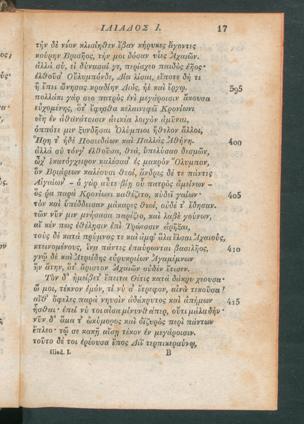 ΙΛΙΑΔΟΣ Ι. 17
τὴν δὲ νέον κλισίηθεν ἔβαν κήρυκες ἄγοντες
κούρην Βρισῆος, τήν μοι δόσαν υἷες Ἀχαιῶν.
ἀλλὰ σύ, εἰ δύνασαί γε, περίσχεο παιδὸς ἑῆος·
ἐλθοῦσ' Οὔλυμπόνδε, Δία λίσαι, εἴποτε δή τι
ἢ ἔπει ὤνησας κραδίην Διός, ἠὲ καὶ ἔργῳ. 395
πολλάκι γάρ σεο πατρὸς ἐνὶ μεγάροισιν ἄκουσα
εὐχομένης, ὅτ' ἔφησθα κελαινεφέϊ Κρονίωνι
οἴη ἐν ἀθανάτοισιν ἀεικέα λοιγὸν ἀμῦναι,
ὁππότε μιν ξυνδῆσαι Ὀλύμπιοι ἤθελον ἄλλοι,
Ἥρη τ' ἠδὲ Ποσειδάων καὶ Παλλὰς Ἀθήνη· 400
ἀλλὰ σὺ τόνγ' ἐλθοῦσα, θεά, ὑπελύσαο δεσμῶν,
ὦχ' ἑκατόγχειρον καλέσασ' ἐς μακρὸν Ὄλυμπον,
ὃν Βριάρεων καλέουσι θεοί, ἄνδρες δέ τε πάντες
Αἰγαίων'· ὁ γὰρ αὖτε βίῃ οὗ πατρὸς ἀμείνων·
ὅς ῥα παρὰ Κρονίωνι καθέζετο, κύδεϊ γαίων· 405
τὸν καὶ ὑπέδδεισαν μάκαρες θεοί, οὐδέ τ' ἔδησαν.
τῶν νῦν μιν μνήσασα παρέζεο, καὶ λαβὲ γούνων,
αἴ κέν πως ἐθέλῃσιν ἐπὶ Τρώεσσιν ἀρῆξαι,
τοὺς δὲ κατὰ πρύμνας τε καὶ ἀμφ' ἅλα ἔλσαι Ἀχαιούς,
κτεινομένους, ἵνα πάντες ἐπαύρωνται βασιλῆος, 410
γνῷ δὲ καὶ Ἀτρείδης εὐρυκρείων Ἀγαμέμνων
ἣν ἄτην, ὅτ' ἄριστον Ἀχαιῶν οὐδὲν ἔτισεν.
Τὸν δ' ἠμείβετ' ἔπειτα Θέτις κατὰ δάκρυ χέουσα·
ὤ μοι, τέκνον ἐμόν, τί νύ σ' ἔτρεφον, αἰνὰ τεκοῦσα!
αἴθ' ὄφελες παρὰ νηυσὶν ἀδάκρυτος καὶ ἀπήμων 415
ἧσθαι· ἐπεί νύ τοι αἶσα μίνυνθά περ, οὔτι μάλα δήν·
νῦν δ' ἅμα τ' ὠκύμορος καὶ ὀϊζυρὸς περὶ πάντων
ἔπλεο· τῷ σε κακῇ αἴσῃ τέκον ἐν μεγάροισιν.
τοῦτο δέ τοι ἐρέουσα ἔπος Διῒ τερπικεραύνῳ,
Iliad. I. B